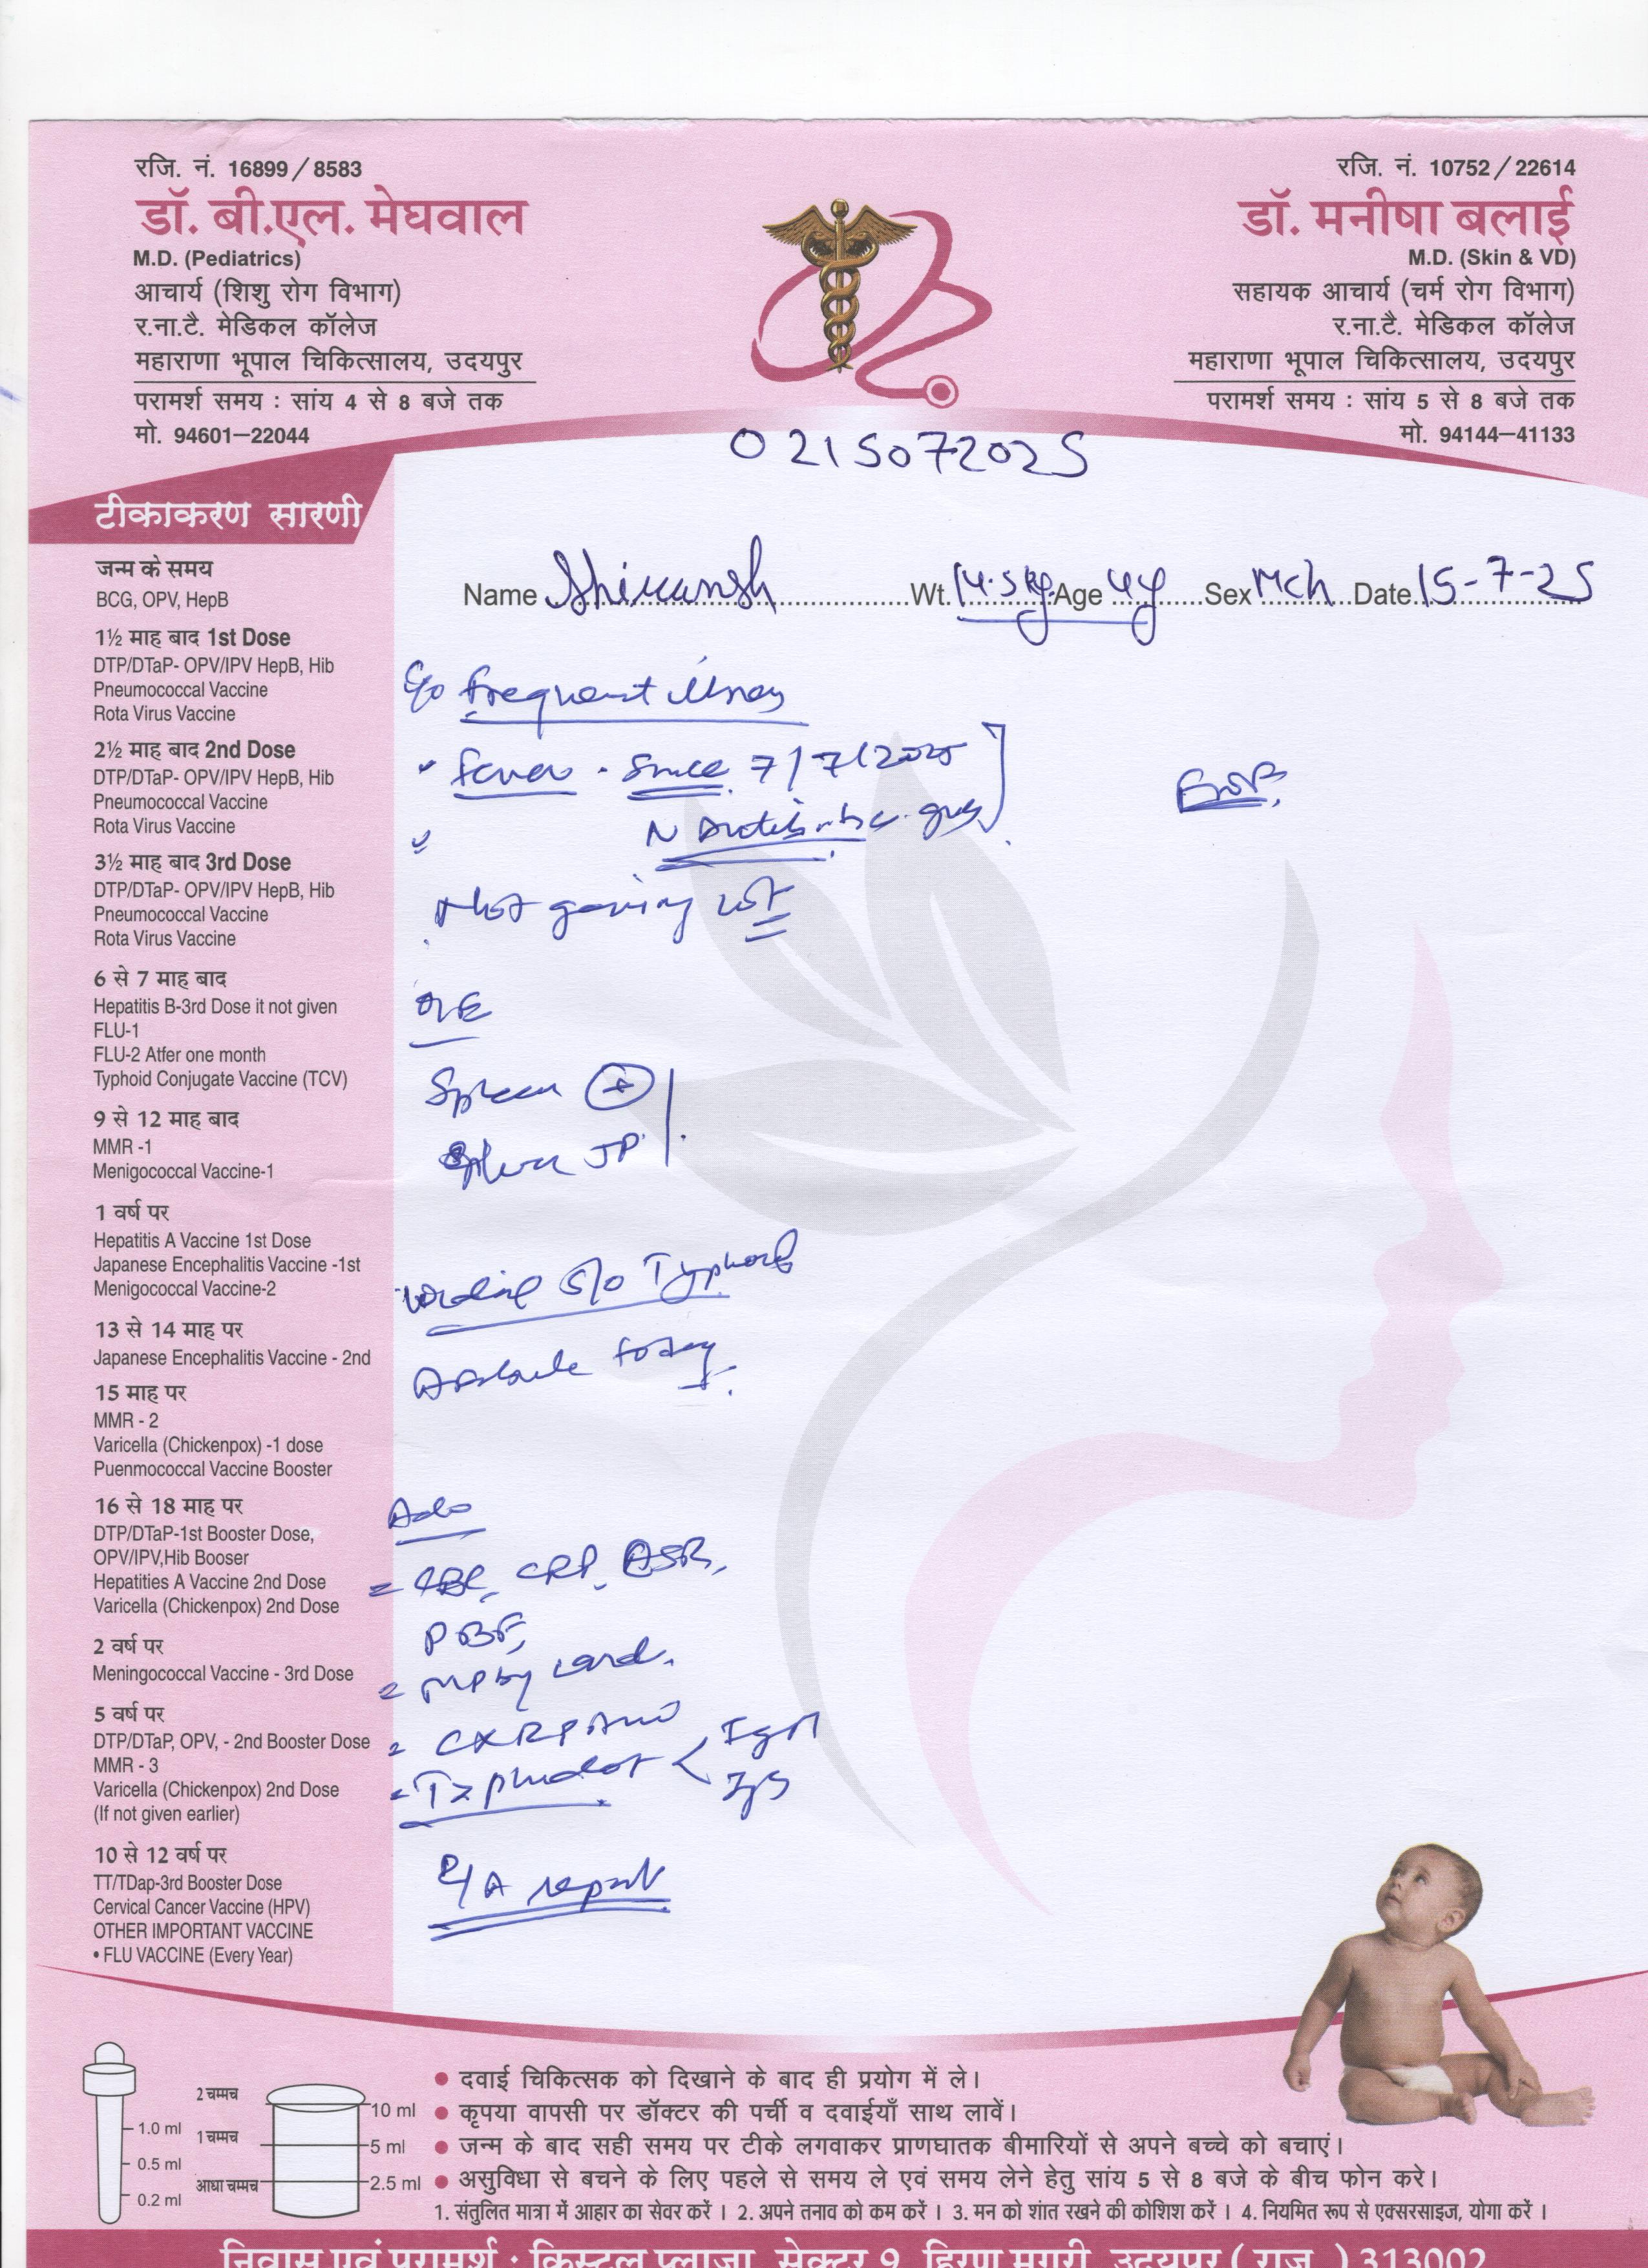 रजि. नं. 16899/8583
डॉ. बी.एल. मेघवाल
M.D. (Pediatrics)
आचार्य (शिशु रोग विभाग)
र.ना.टै. मेडिकल कॉलेज
महाराणा भूपाल चिकित्सालय, उदयपुर
परामर्श समय : सांय 4 से 8 बजे तक
मो. 94601–22044
रजि. नं. 10752/22614
डॉ. मनीषा बलाई
M.D. (Skin & VD)
सहायक आचार्य (चर्म रोग विभाग)
र.ना.टै. मेडिकल कॉलेज
महाराणा भूपाल चिकित्सालय, उदयपुर
परामर्श समय : सांय 5 से 8 बजे तक
मो. 94144–41133
0215072025
टीकाकरण सारणी
जन्म के समय
BCG, OPV, HepB
1½ माह बाद 1st Dose
DTP/DTaP- OPV/IPV HepB, Hib
Pneumococcal Vaccine
Rota Virus Vaccine
2½ माह बाद 2nd Dose
DTP/DTaP- OPV/IPV HepB, Hib
Pneumococcal Vaccine
Rota Virus Vaccine
3½ माह बाद 3rd Dose
DTP/DTaP- OPV/IPV HepB, Hib
Pneumococcal Vaccine
Rota Virus Vaccine
6 से 7 माह बाद
Hepatitis B-3rd Dose it not given
FLU-1
FLU-2 Atfer one month
Typhoid Conjugate Vaccine (TCV)
9 से 12 माह बाद
MMR -1
Menigococcal Vaccine-1
1 वर्ष पर
Hepatitis A Vaccine 1st Dose
Japanese Encephalitis Vaccine -1st
Menigococcal Vaccine-2
13 से 14 माह पर
Japanese Encephalitis Vaccine - 2nd
15 माह पर
MMR - 2
Varicella (Chickenpox) -1 dose
Puenmococcal Vaccine Booster
16 से 18 माह पर
DTP/DTaP-1st Booster Dose,
OPV/IPV,Hib Booser
Hepatities A Vaccine 2nd Dose
Varicella (Chickenpox) 2nd Dose
2 वर्ष पर
Meningococcal Vaccine - 3rd Dose
5 वर्ष पर
DTP/DTaP, OPV, - 2nd Booster Dose
MMR - 3
Varicella (Chickenpox) 2nd Dose
(If not given earlier)
10 से 12 वर्ष पर
TT/TDap-3rd Booster Dose
Cervical Cancer Vaccine (HPV)
OTHER IMPORTANT VACCINE
• FLU VACCINE (Every Year)
Name Shivansh Wt. 14.5 kg Age 4y Sex Mch Date 15-7-25
C/o frequent illness
fever - since 7/7/2025
Not gaining wt
O/E
Spleen +
S/o Typhoid
today
Adv
= CBC, CRP, ESR,
PBF,
= MP by card.
= CXR PA
= Typhidot < IgM
IgG
report
2 चम्मच
1 चम्मच
आधा चम्मच
1.0 ml
0.5 ml
0.2 ml
10 ml
5 ml
2.5 ml
● दवाई चिकित्सक को दिखाने के बाद ही प्रयोग में ले।
● कृपया वापसी पर डॉक्टर की पर्ची व दवाईयाँ साथ लावें।
● जन्म के बाद सही समय पर टीके लगवाकर प्राणघातक बीमारियों से अपने बच्चे को बचाएं।
● असुविधा से बचने के लिए पहले से समय ले एवं समय लेने हेतु सांय 5 से 8 बजे के बीच फोन करे।
1. संतुलित मात्रा में आहार का सेवर करें । 2. अपने तनाव को कम करें । 3. मन को शांत रखने की कोशिश करें । 4. नियमित रूप से एक्सरसाइज, योगा करें ।
निवास एवं परामर्श : क्रिस्टल प्लाजा, सेक्टर 9, हिरण मगरी, उदयपुर ( राज. ) 313002